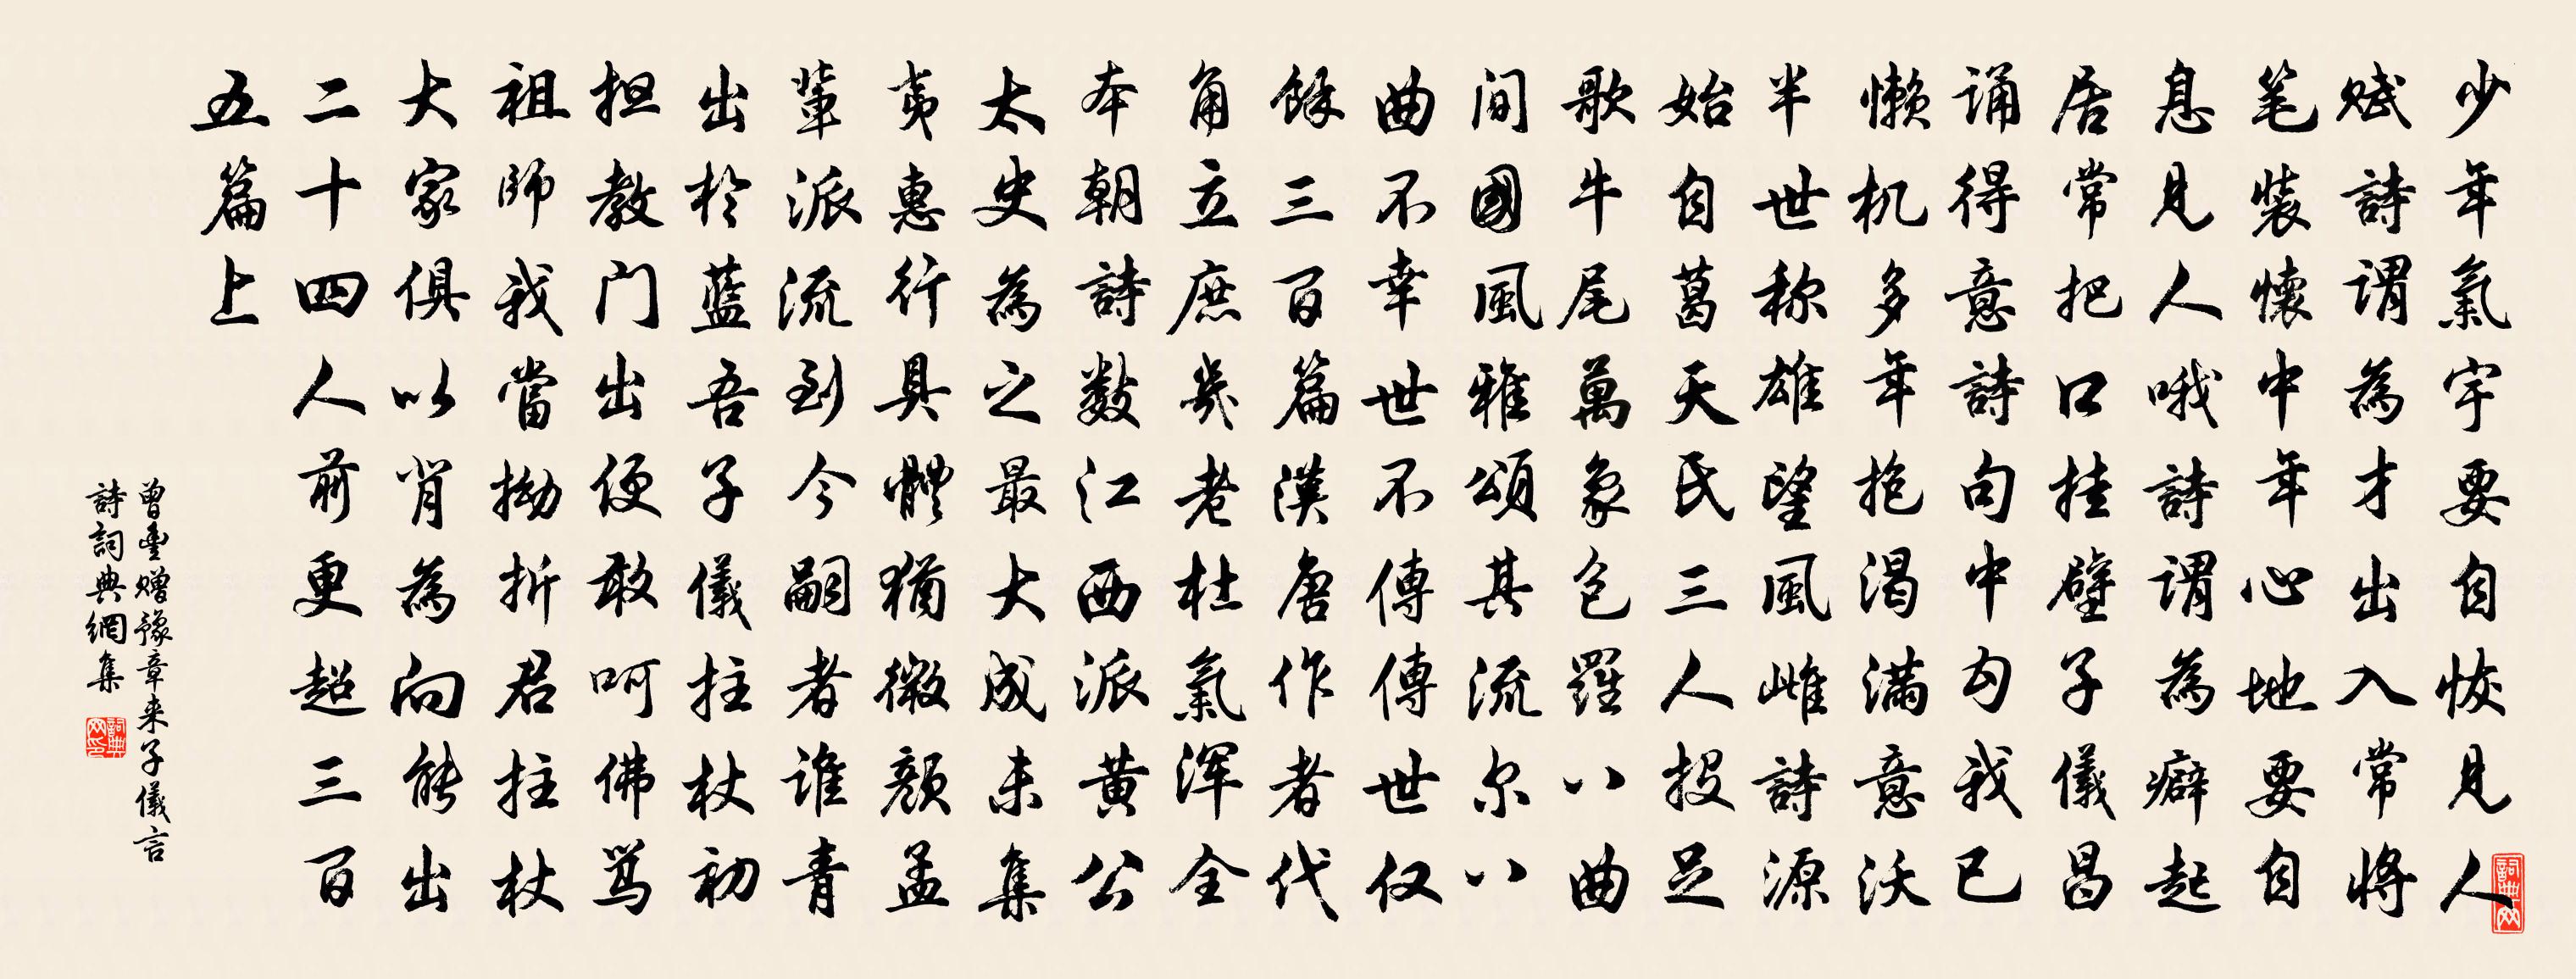 少年氣宇要自恢見人
賦詩謂為才出入常將
笔裝懷中年心地要自
息見人哦詩謂為癖起
居常把口挂壁子儀昌
诵得意詩句中勾我已
懒机多年抱渴滿意沃
半世称雄望風雌詩源
始自葛天氏三人投足
歌牛尾萬象包羅八曲
间國風雅頌其流尔八
曲不幸世不傳傳世仅
餘三百篇漢唐作者代
角立庶幾老杜氣浑全
本朝詩数江西派黄公
太史為之最大成未集
夷惠行具體猶微顏孟
輩派流到今嗣者谁青
出於藍吾子儀拄杖初
担教门出便敢呵佛骂
祖師我當拗折君拄杖
大家俱以背為向能出
二十四人前更超三百
五篇上
曾豐赠豫章来子儀言
詩詞典網集
詞典网印
詞典网